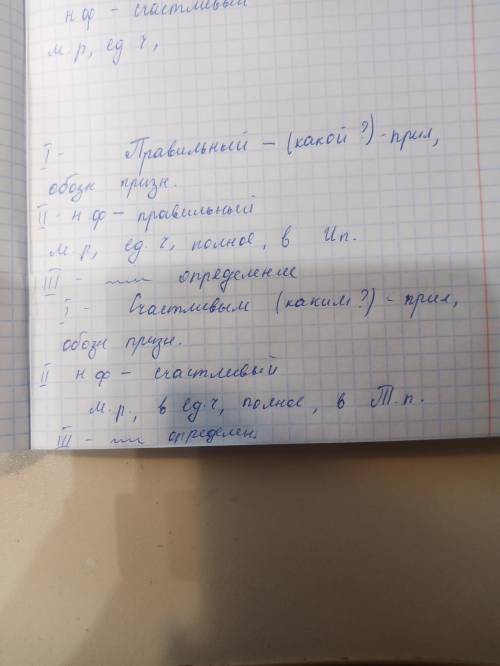 н ф - счастливый
м. р, ед ч,
I - Правильный - (какой?) - прил,
обозн призн.
II - н ф - правильный
м р, ед. ч, полное, в Ип.
III - определение
I - Счастливым (каким?) - прил,
обозн призн.
II н ф - счастливый
м. р., в ед. ч, полное, в Т. п.
III - определен.